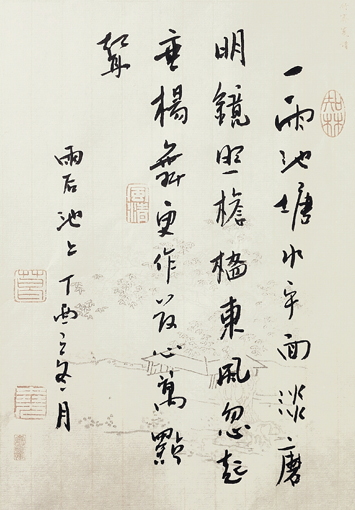 一雨池塘水平面淡磨
明鏡照檐楹東風忽起
垂楊舞更作荷心萬點
聲
雨后池上丁酉之冬月